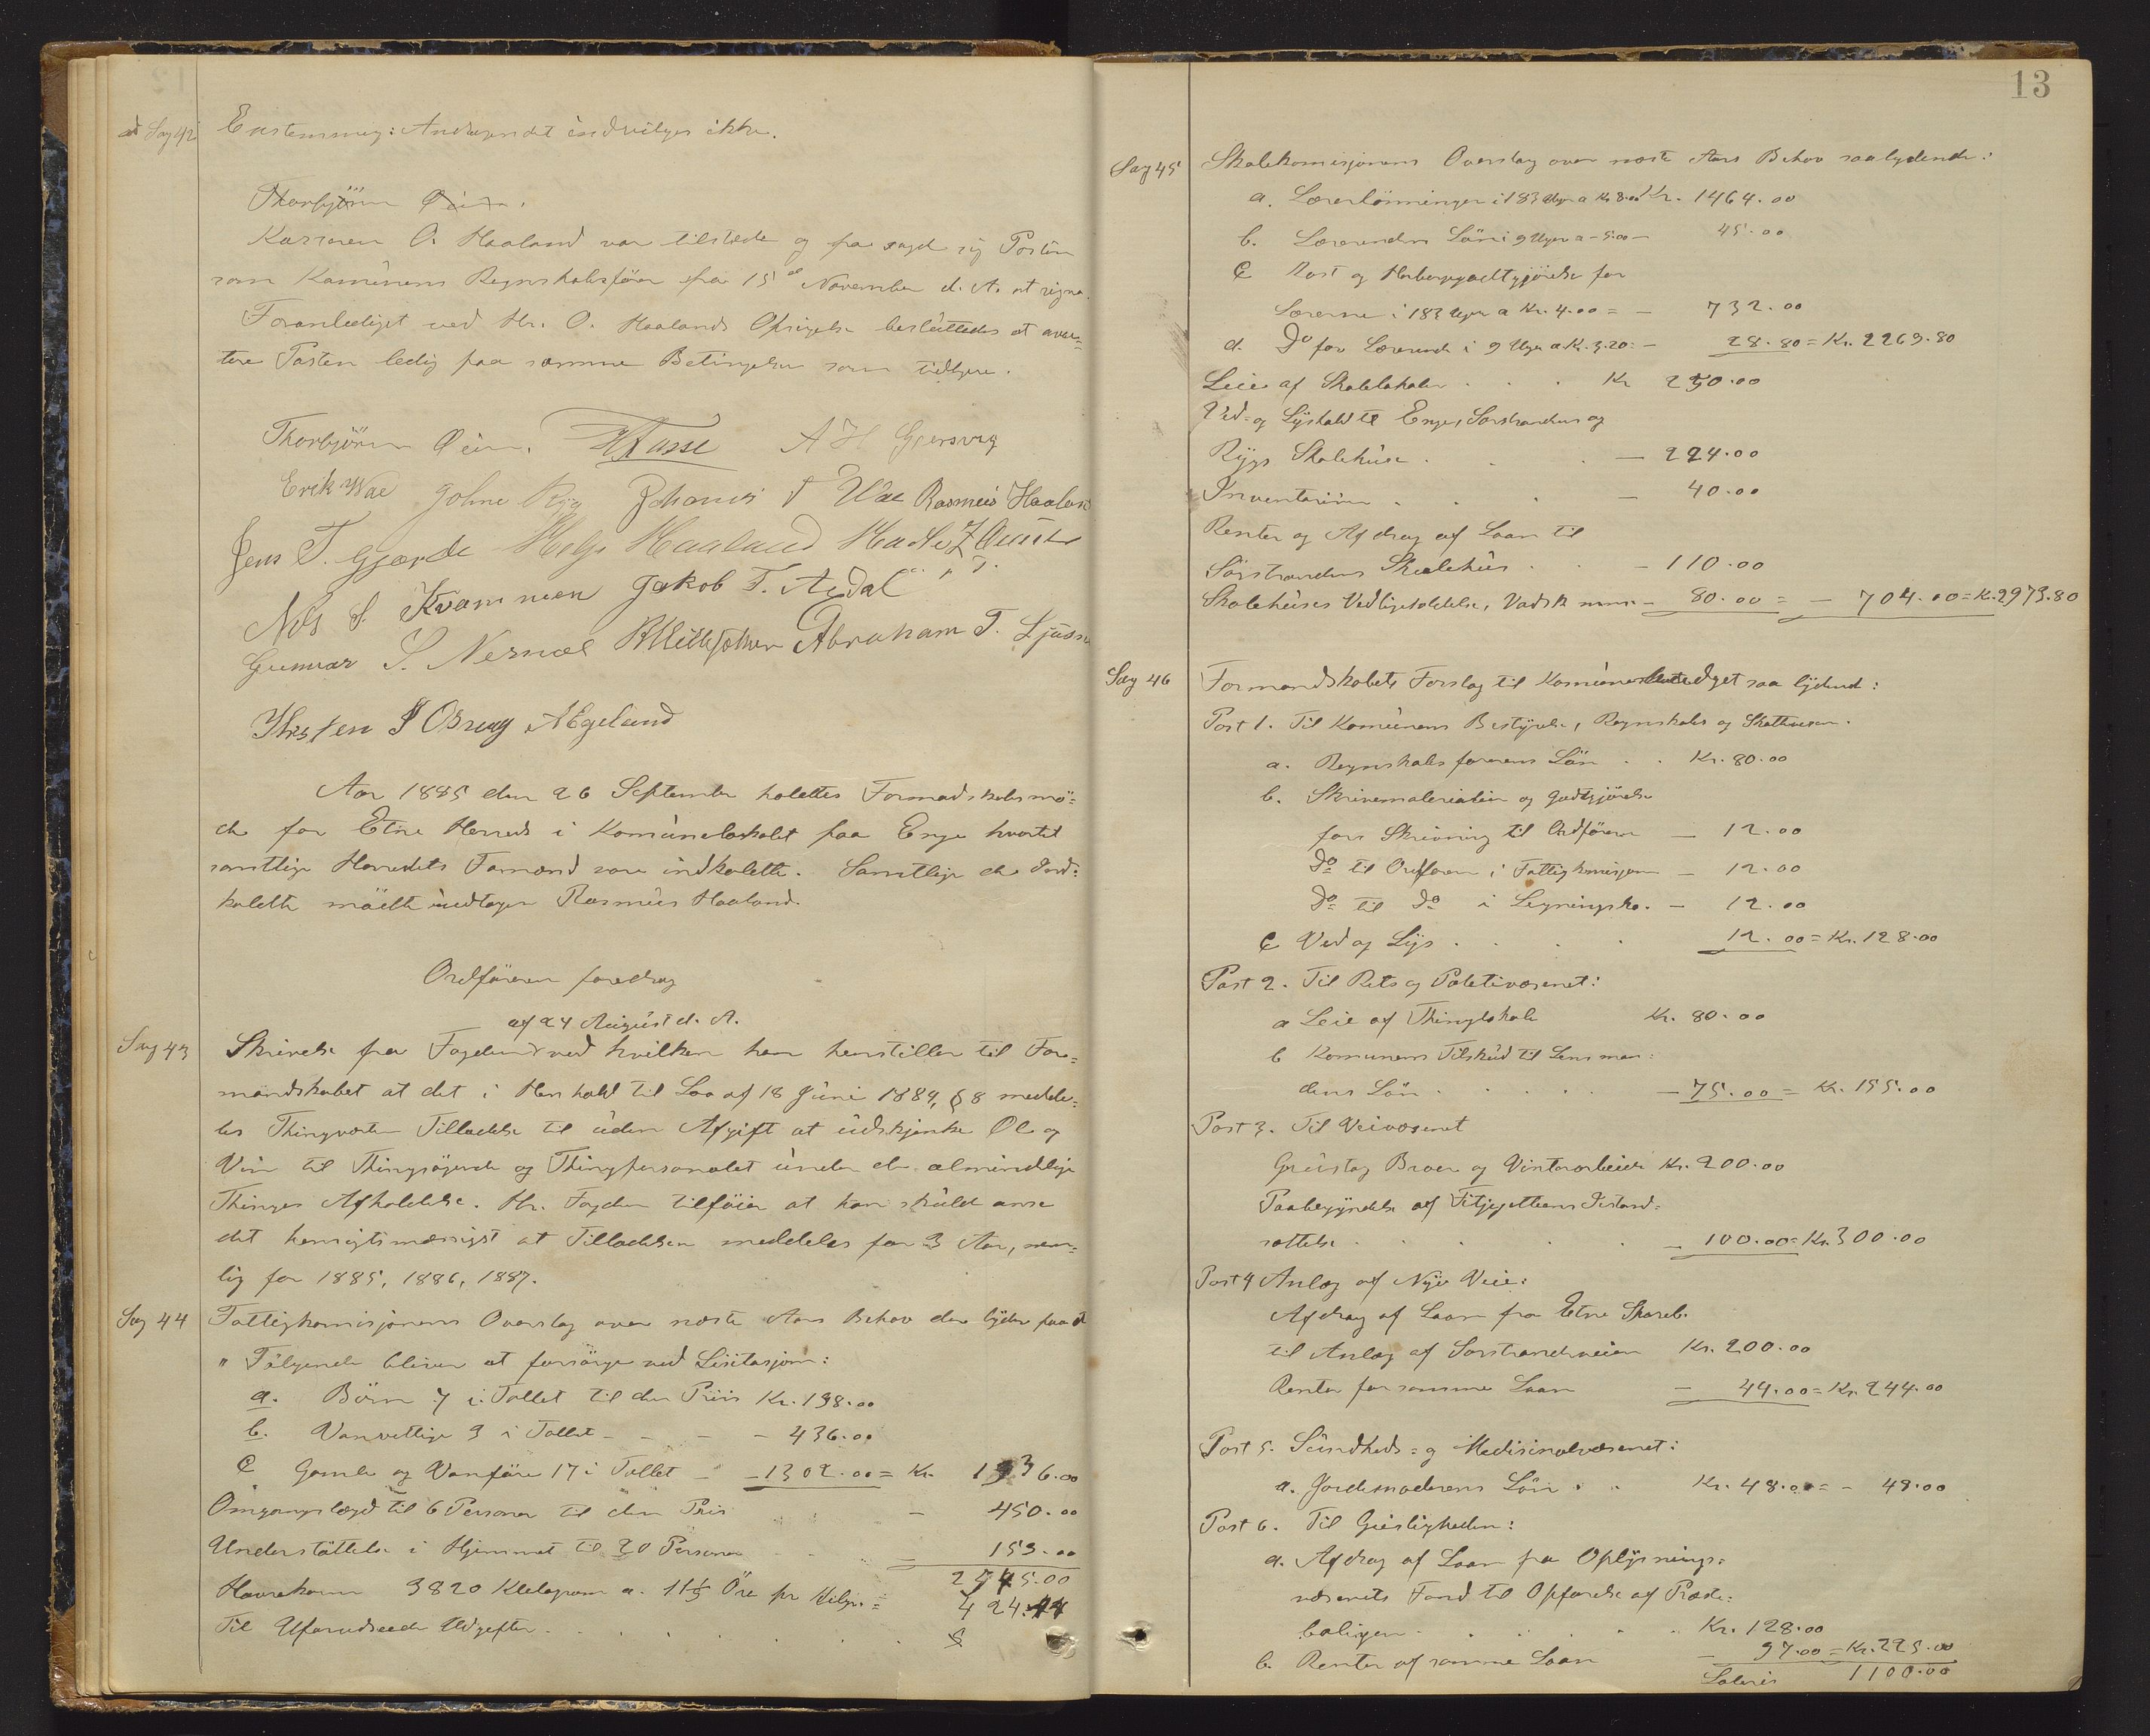 ad Sag 42 Enstemmig: Andragendet indvilges ikke.
Thorbjörn Øien.
Kasseren O. Haaland var tilstede og fra sagde sig Posten
som Komünens Regnskabsförer fra 15de November d. A. at regne.
Foranlediget ved Hr. O. Haalands Opsigelse besluttedes at aver=
tere Posten ledig paa samme Betingelser som tidligere.
Thorbjörn Øien. A H Gjersvig
Erik Wae Johne Ryg Johannes J Wae Rasmus Haaland
Jens T. Gjærde Helge Haaland
Nils S. Kvammen Jakob T. Ardal
Gunnar S. Nernæs Abraham T.
A Egeland
Aar 1885 den 26 September holdtes Formandskabsmö=
de for Etne Herred i Komünelokalet paa Enge hvortil
samtlige Herredets Formænd vare indkaldte. Samtlige de Ind=
kaldte mödte undtagen Rasmüs Haaland.
Ordföreren foredrog
af 24 Aügüst d. A.
Sag 43 Skrivelse fra Fogden ved hvilken han henstiller til For=
mandskabet at det i Henhold til Lov af 18 Jüni 1884, § 8 medde=
les Thingværten Tilladelse til üden Afgift at üdskjænke Øl og
Vin til Thingsögende og Thingpersonalet ünder de almindelige
Thinges Afholdelse. Hr. Fogden tilföier at han skülde anse
det hensigtsmæssigst at Tilladelsen meddeles for 3 Aar, nem=
lig for 1885, 1886, 1887.
Sag 44 Fattigkomisjonens Overslag over næste Aars Behov der lyder paa at
" Fölgende bliver at forsörge ved Lisitasjon:
a. Börn 7 i Tallet til den Priis Kr. 198.00
b. Vanvittige 3 i Tallet - - - 436.00
c Gamle og Vanföre 17 i Tallet - - 1302.00 = Kr. 1936.00
Omgangslægd til 6 Personer til den Pris - 450.00
Understöttelse i Hjemmet til 20 Personer - 159.00
2545.00
Havrekorn 3820 Kilogram a. 11 1/9 Öre pr Kilgr. = 424.44
Til Uforudseede Udgifter . . . . .
13
Sag 45 Skolekomisjonens Overslag over næste Aars Behov saalydende:
a. Lærerlönninger i 183 Uger a Kr 8.00 Kr. 1464.00
b. Lærerindens Lön i 9 Uger a - 5.00 - 45.00
c Kost og Herberggodtgjörelse for
Lærerne i 183 Uger a Kr. 4.00 = - 732.00
d. Do for Lærerinde i 9 Uger a. Kr. 3.20 = - 28.80 = Kr. 2269.80
Leie af Skolelokaler . . . Kr 250.00
Ved= og Lyshold til Enges, Sörstrandens og
Rygs Skolehüse . . . - 224.00
Inventarium . . . - 40.00
Renter og Afdrag af Laan til
Sörstrandens Skolehüs . . - 110.00
Skolehüses Vedligeholdelse, Vadsk m.m. - 80.00 = - 704.00 = K. 2973.80
Sag 46 Formandskabets Forslag til Komünebudget saa lydende:
Post 1. Til Komünens Bestyrelse, Regnskabs og Skattvesen.
a. Regnskabsförerens Lön . . Kr. 80.00
b. Skrivematerialier og godtgjörelse
for Skrivning til Ordföreren - 12.00
Do til Ordföreren i Fattigkomisjonen - 12.00
Do til Do i Ligningsko. - 12.00
c Ved og Lys . . . . 12.00 = Kr. 128.00
Post 2. Til Rets og Politivæsenet:
a Leie af Thinglokale Kr. 80.00
b Komunens Tilsküd til Lensman=
dens Lön . . . . - 75.00 = Kr. 155.00
Post 3. Til Veivæsenet
Grüstag Broer og Vinterarbeide Kr. 200.00
Paabegyndelse af Istand=
sættelse . . . . . - 100.00 = Kr. 300.00
Post 4 Anlæg af Nye Veie:
Afdrag af Laan fra Etne Spareb.
til Anlæg af Sörstrandsveien Kr. 200.00
Renter for samme Laan - 44.00 = Kr. 244.00
Post 5. Sündheds= og Medisinalvæsenet:
a. Jordemoderens Lön . . Kr. 48.00 = - 48.00
Post 6. Til Geistligheden:
a. Afdrag af Laan fra Oplysnings=
væsenets Fond til Opförelse af Præste=
boligen . . . . . Kr. 128.00
b. Renter af samme Laan - 97.00 = Kr. 225.00
Lateris 1100.00